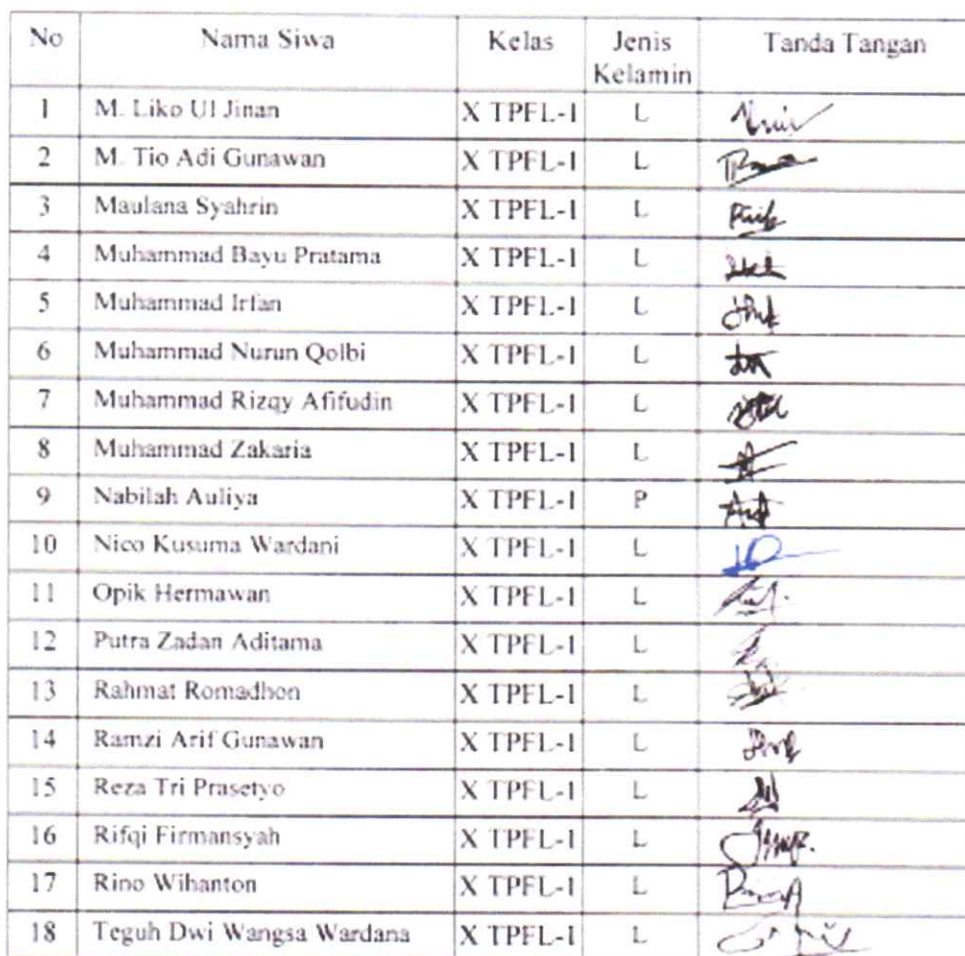 No Nama Siwa Kelas Jenis Kelamin Tanda Tangan
1 M. Liko Ul Jinan X TPFL-1 L
2 M. Tio Adi Gunawan X TPFL-1 L
3 Maulana Syahrin X TPFL-1 L
4 Muhammad Bayu Pratama X TPFL-1 L
5 Muhammad Irfan X TPFL-1 L
6 Muhammad Nurun Qolbi X TPFL-1 L
7 Muhammad Rizqy Afifudin X TPFL-1 L
8 Muhammad Zakaria X TPFL-1 L
9 Nabilah Auliya X TPFL-1 P
10 Nico Kusuma Wardani X TPFL-1 L
11 Opik Hermawan X TPFL-1 L
12 Putra Zadan Aditama X TPFL-1 L
13 Rahmat Romadhon X TPFL-1 L
14 Ramzi Arif Gunawan X TPFL-1 L
15 Reza Tri Prasetyo X TPFL-1 L
16 Rifqi Firmansyah X TPFL-1 L
17 Rino Wihanton X TPFL-1 L
18 Teguh Dwi Wangsa Wardana X TPFL-1 L